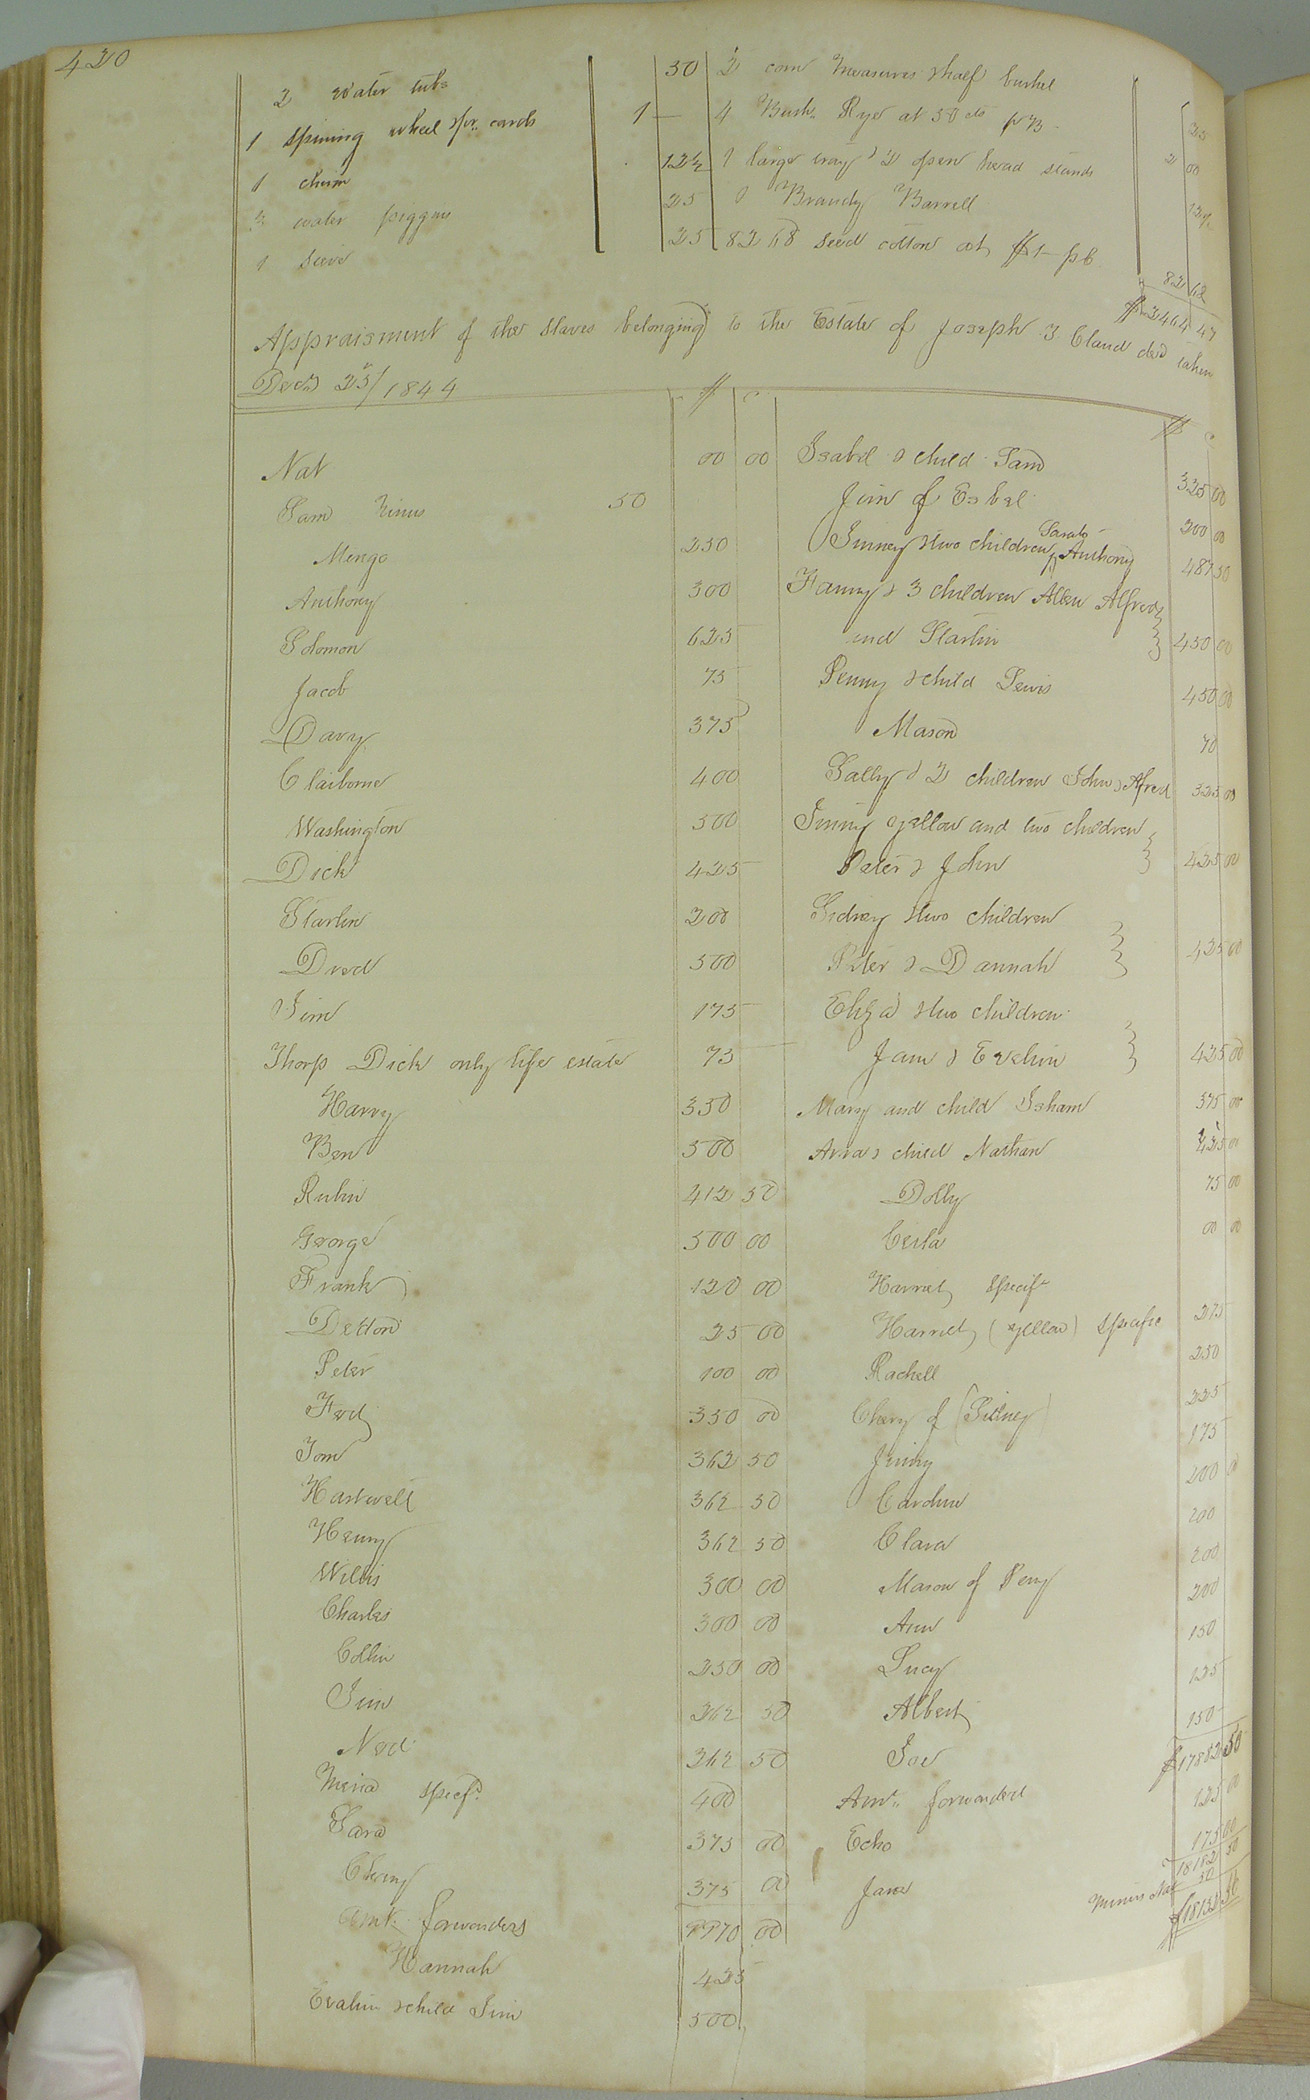 420
2 water tubs 50
1 spining wheel & pr. cards 1 —
1 churn 12½
2 water piggins 25
1 sieve 25
2 corn measures & half bushel 25
4 Bush. Rye at 50 cts pr B 2 00
1 large tray & 2 open head stands
1 Brandy Barrell
8268 seed cotton at $1 — pc 82 68
$2464 47
Appraisment of the Slaves belonging to the Estate of Joseph Bland decd taken
Decr. 25th / 1844
$ c
Nat 00 00
Sam 50
Mengo 250
Anthony 300
Solomon 625
Jacob 75
Davy 375
Claiborne 400
Washington 500
Dick 425
Starlin 200
Dred 500
Jim 175
Thorp Dick only life estate 75
Harry 350
Ben 500
Rubin 412 50
George 500 00
Frank 120 00
25 00
Peter 100 00
Fed 350 00
Tom 362 50
Hartwell 362 50
Henry 362 50
Willis 300 00
Charles 300 00
Collin 250 00
Jim 262 50
Ned 262 50
specf. 400
Sara 375 00
Cherry 375 00
Amt. forwarders 00
Hannah 425
Evalin & child Jim 500
$ c
Isabel & child Sam 325 00
Jim of Esbel 200 00
Jinney & two children Sarah & Anthony 487 50
Fanny & 3 children Allen Alfred
and Starlin 450 00
Penny & child Lewis 450 00
Mason 70
Sally & 2 children John & Alfred 525 00
Jinny yellow and two children
Peter & John 425 00
Sidney & two children
Peter & Dannah 425 00
Eliza & two children
Jane & Evelin 425 00
Mary and child Isham 375 00
Anna & child Nathan 425 00
Dolly 75 00
00 00
Harriet specif
Harriet (yellow) specific 275
Rachell 250
Chery of (Sidney) 225
Jinny 175
Caroline 200 00
Clara 200
Mason of Peny 200
Ann 200
Lucy 150
Albert 125
Joe 150
Amt. forwarded $17882 50
Echo 125 00
Jane 175 00
18182 50
Minus 50
$18132 50